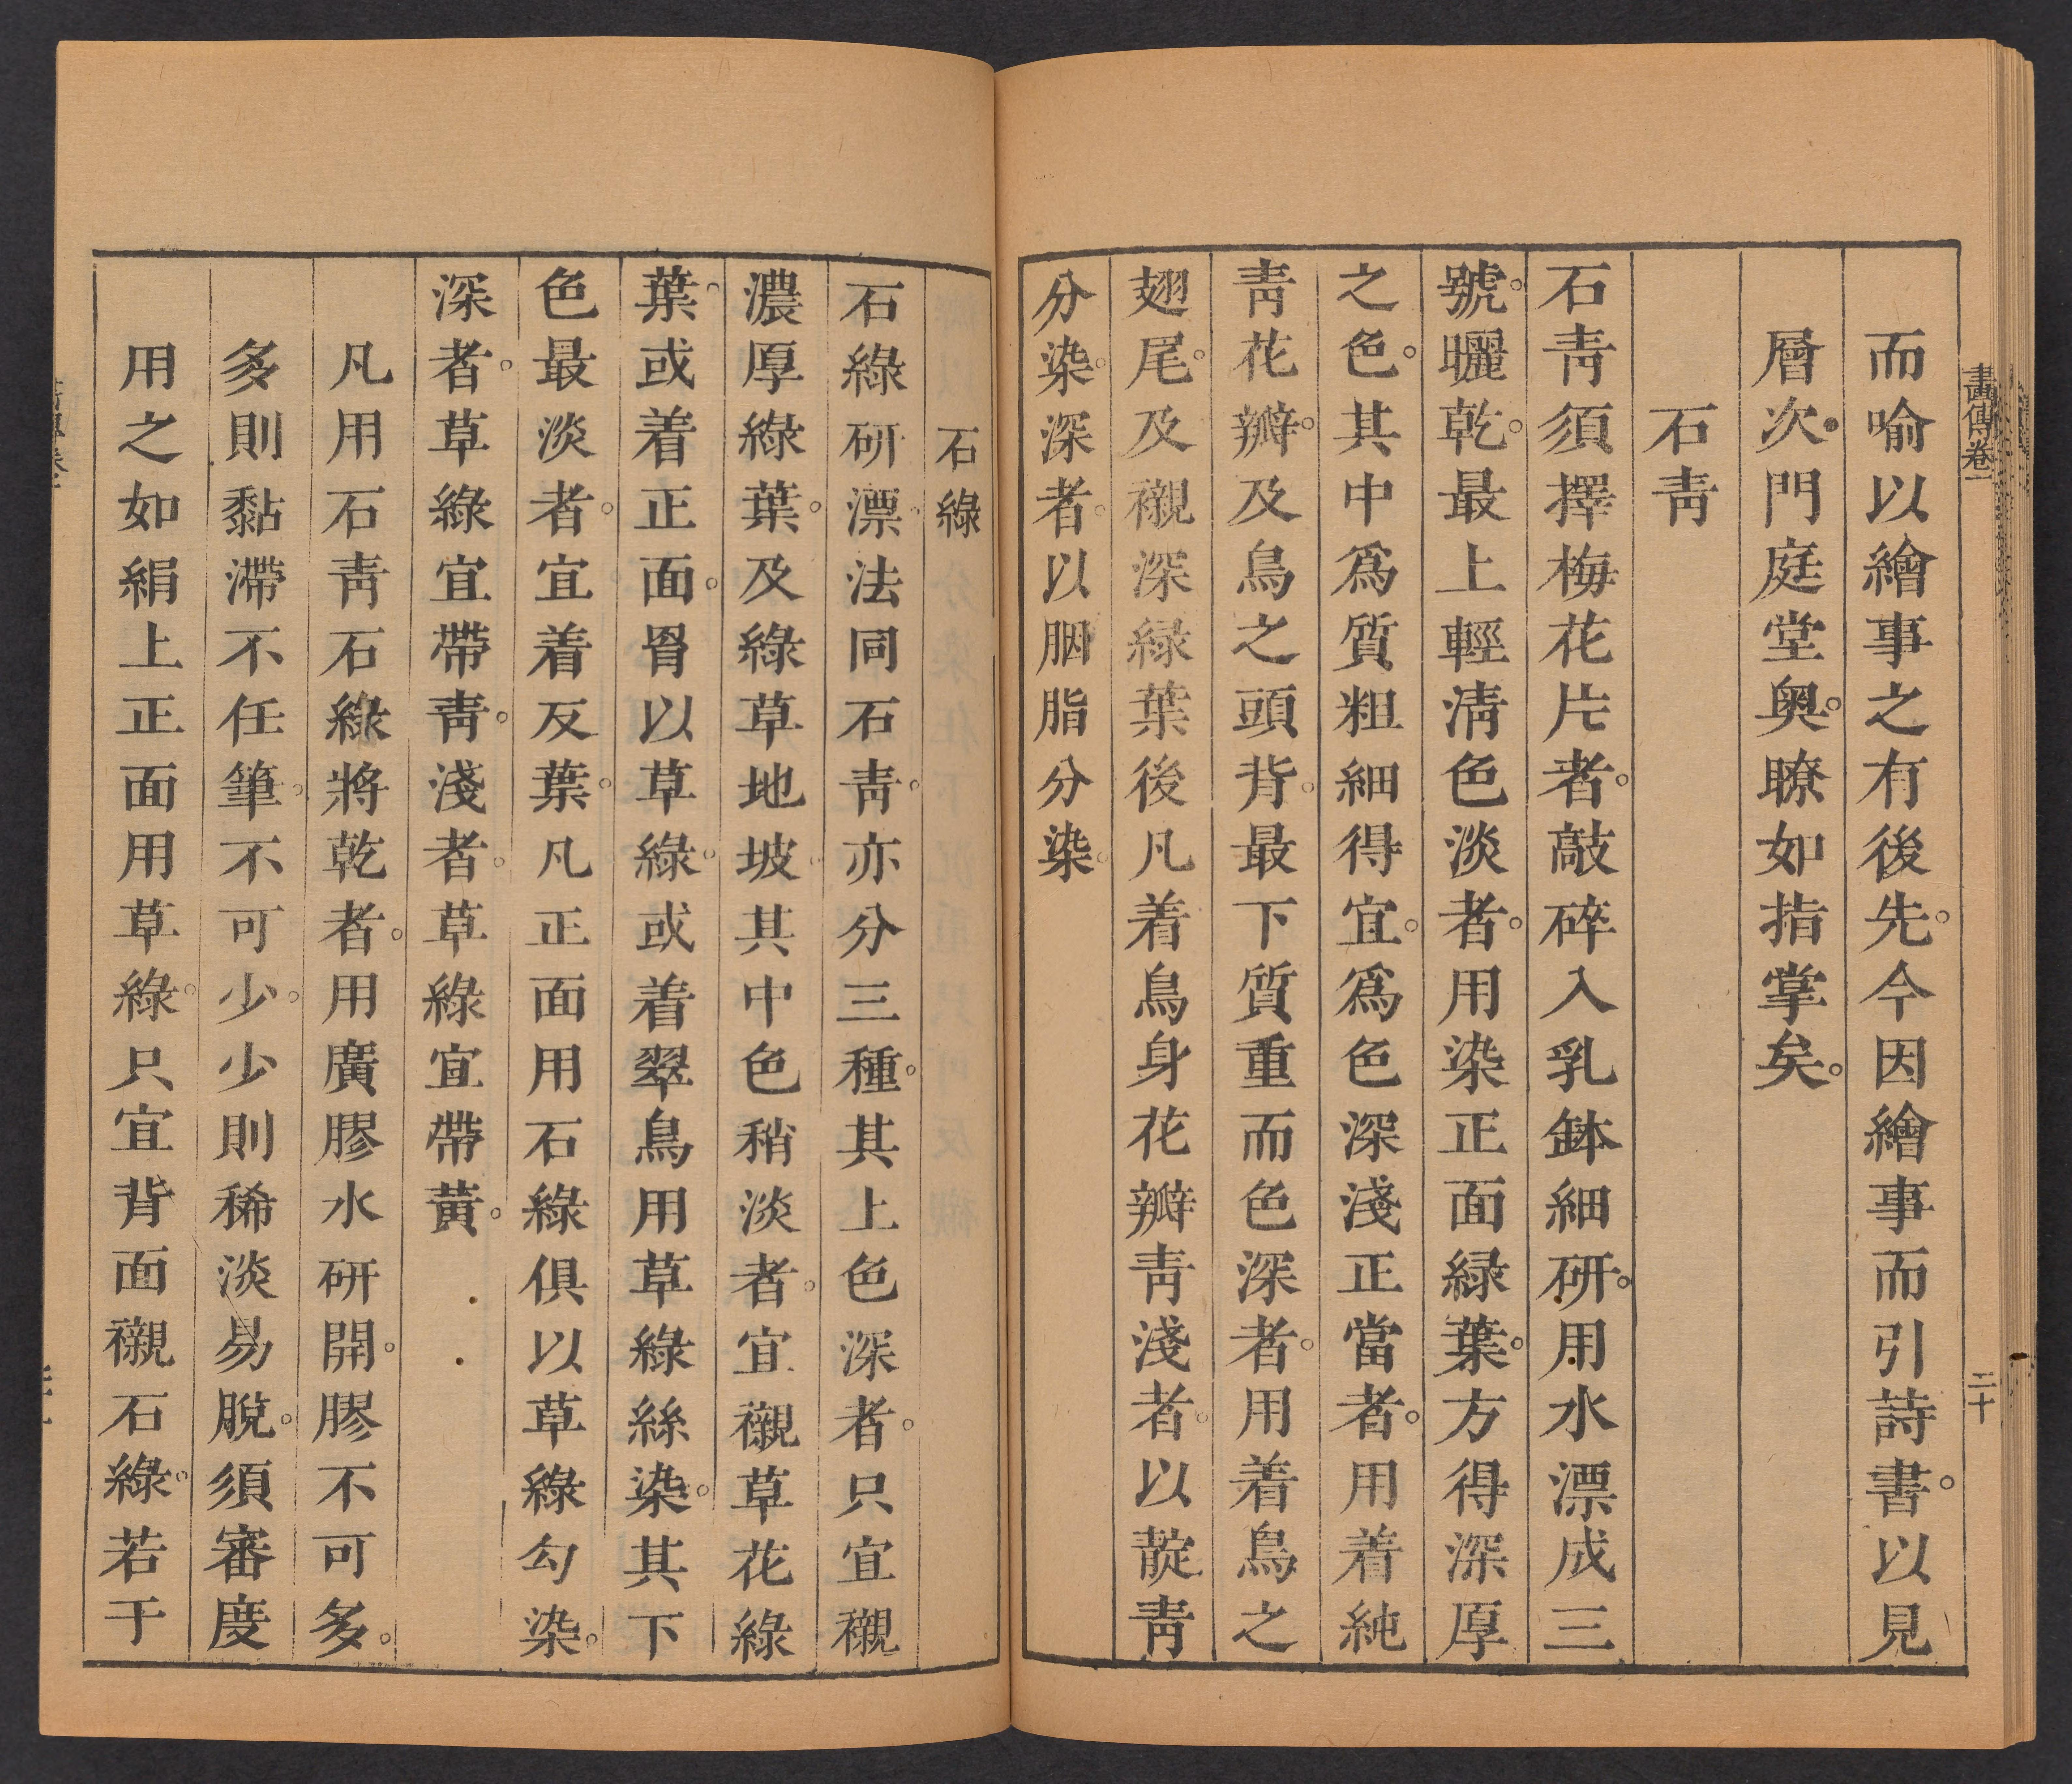 畫傳卷一
二十
而喻以繪事之有後先。今因繪事而引詩書。以見
層次。門庭堂奥。瞭如指掌矣。
石靑
石靑須擇梅花片者。敲碎入乳鉢細研。用水漂成三
號。曬乾。最上輕淸色淡者。用染正面緑葉。方得深厚
之色。其中爲質粗細得宜。爲色深淺正當者。用着純
靑花瓣。及鳥之頭背。最下質重而色深者。用着鳥之
翅尾。及襯深緑葉後凡着鳥身花瓣靑淺者。以靛靑
分染。深者。以胭脂分染。
石綠
石綠研漂法同石靑。亦分三種。其上色深者。只宜襯
濃厚綠葉。及綠草地坡。其中色稍淡者。宜襯草花綠
葉。或着正面。罥以草綠。或着翠鳥用草綠絲染。其下
色最淡者。宜着反葉。凡正面用石綠俱以草綠勾染。
深者。草綠宜帶靑。淺者。草綠宜帶黃。
凡用石靑石綠將乾者。用廣膠水研開。膠不可多。
多則黏滯不任筆。不可少。少則稀淡易脫。須審度
用之如絹上正面用草綠。只宜背面襯石綠。若于